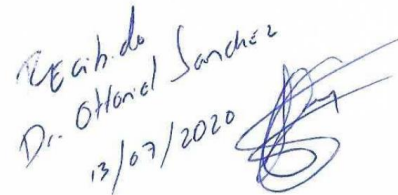 Recibido
Dr. Ottoniel Sanchez
13/07/2020